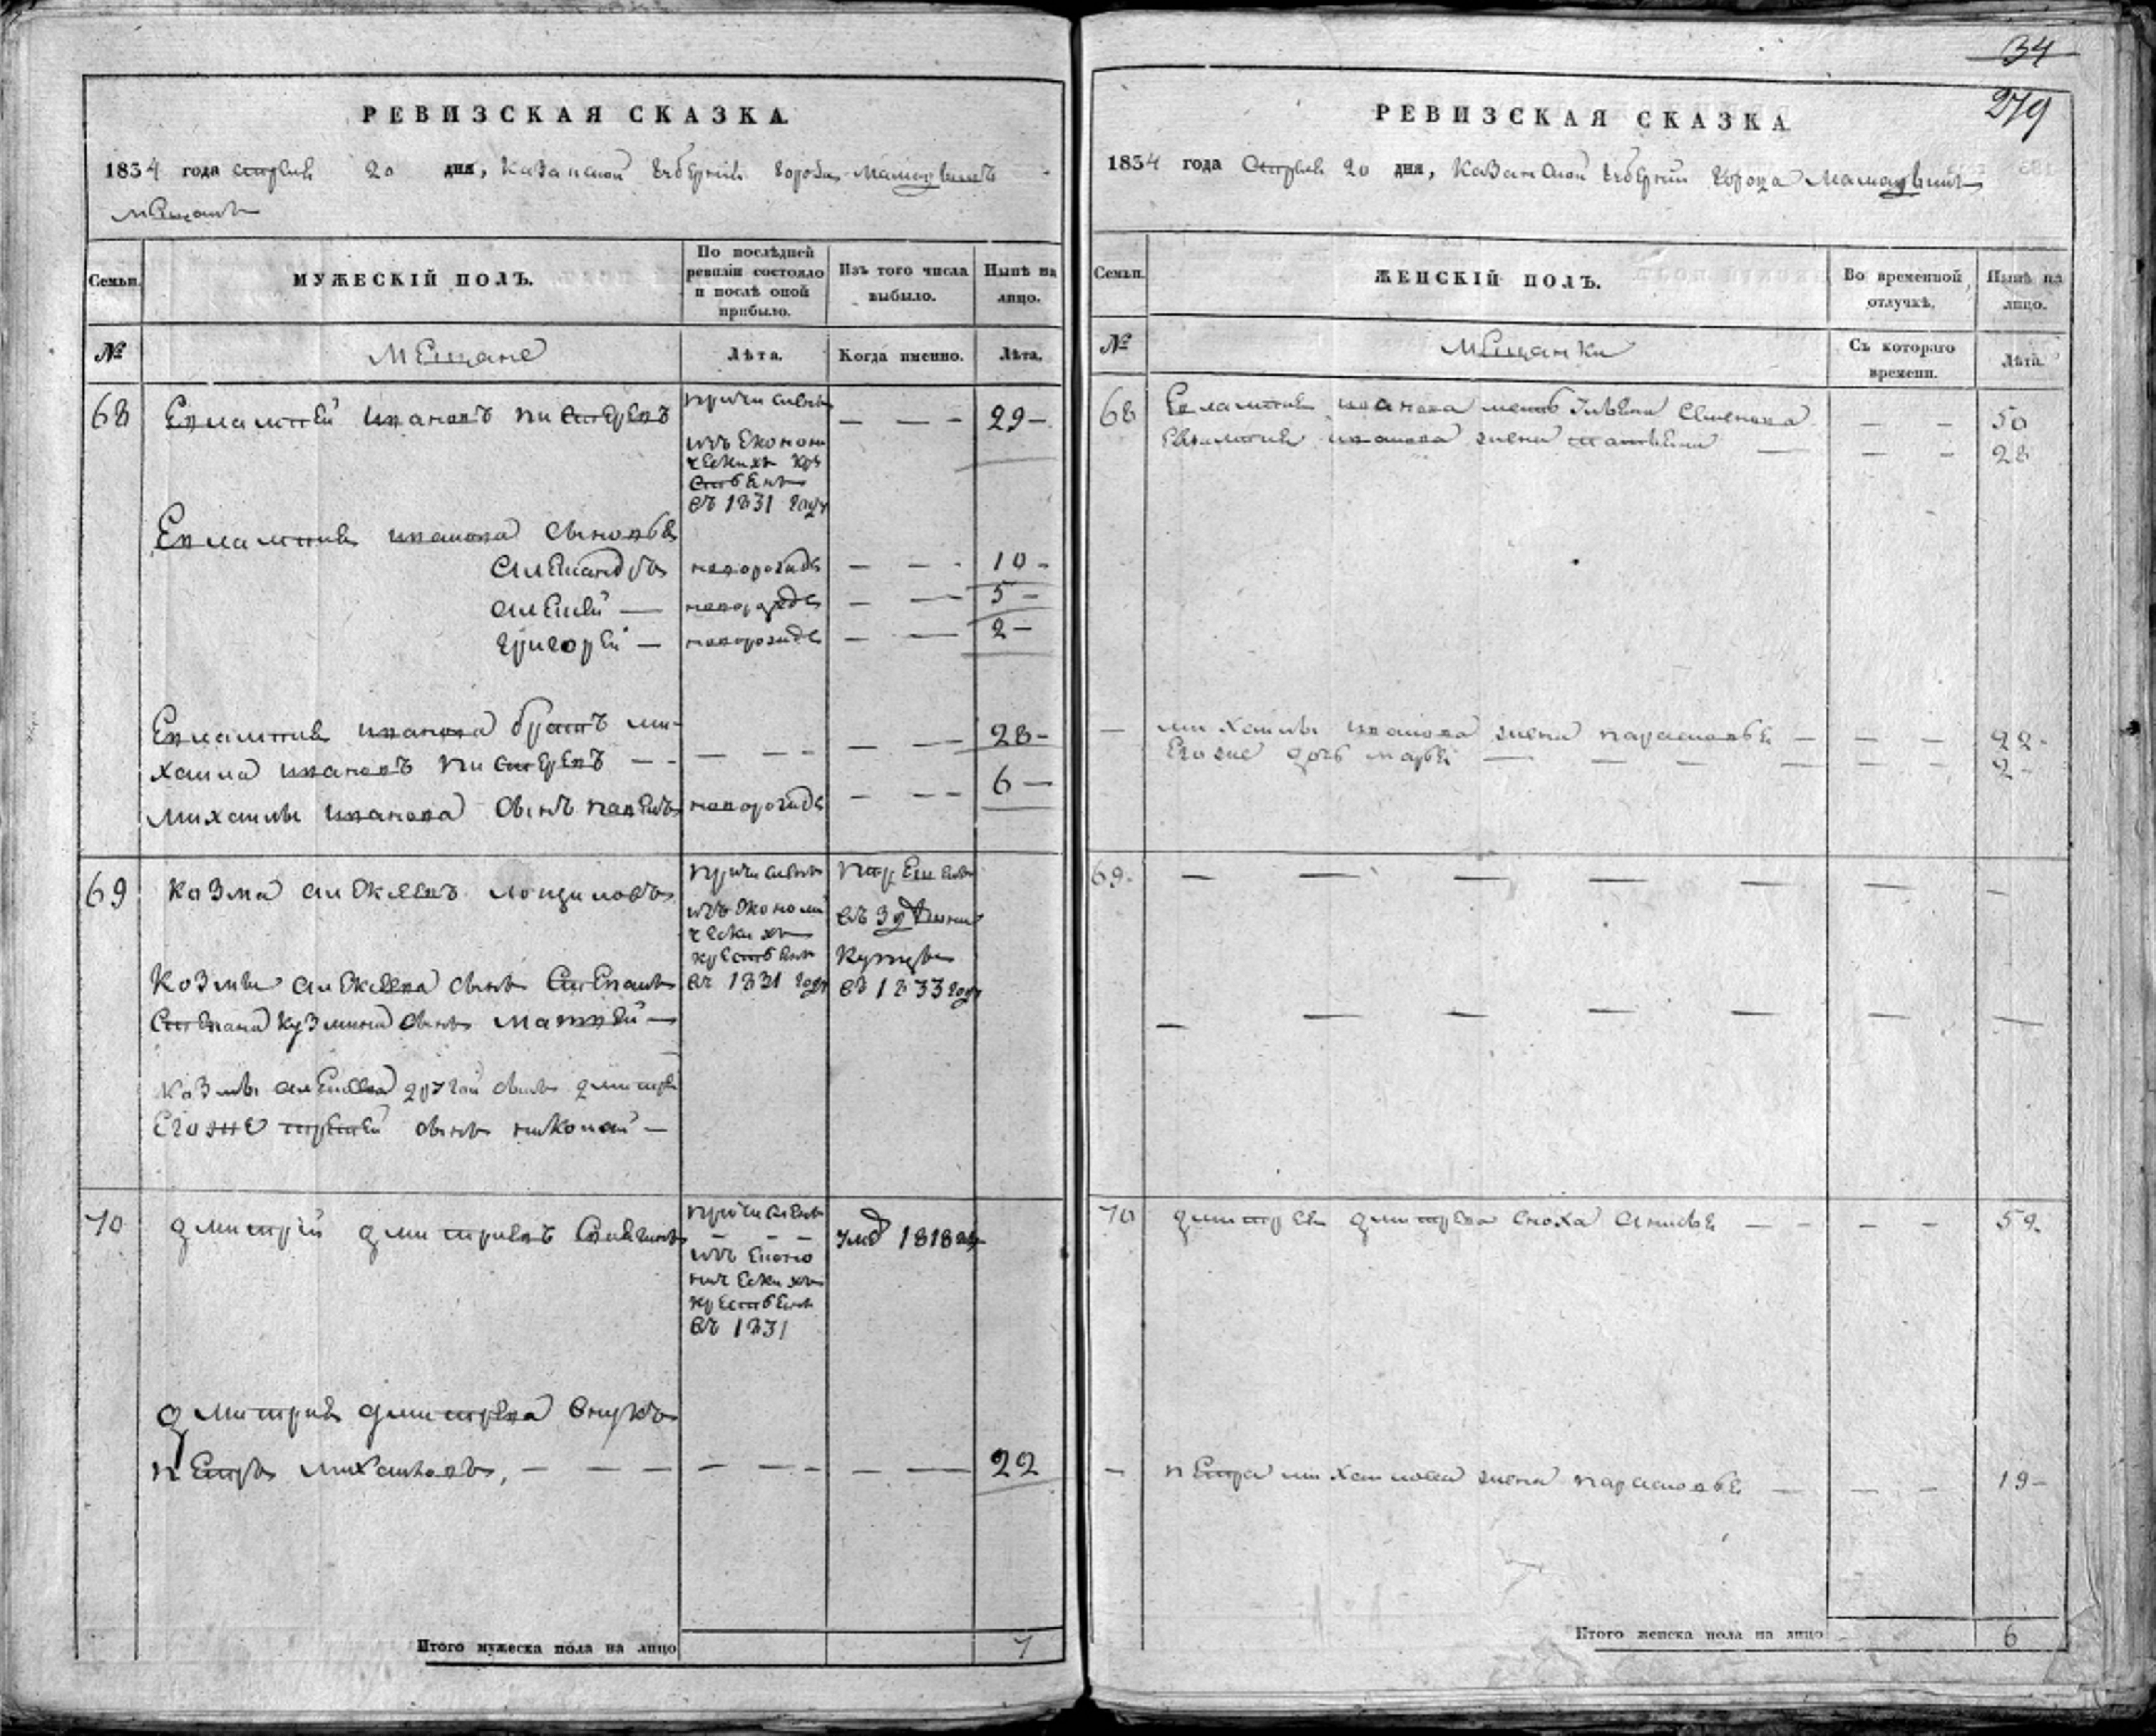 РЕВИЗСКАЯ СКАЗКА
1834 года Апреля 20 дня, Казанской Губернии города Мамадышъ
мещанъ
Семьи.
МУЖЕСКІЙ ПОЛЪ.
По послѣдней ревизіи состояло и послѣ оной прибыло.
Изъ того числа выбыло.
Нынѣ на лицо.
№
Мещане
Лѣта.
Когда именно.
Лѣта.
68 Евлампей Ивановъ причисленъ — — - 29 -
изъ Економи
ческихъ кре
стьянъ
въ 1831 году
Евлампия Иванова сыновья
Александръ новорожде — — - 10 -
Алексей — новорожде — — 5 -
Григорей — новорожде — — 2 -
Евлампия Иванова братъ ми- — — - — — 28 -
хаила Ивановъ — - 6 —
Михаилы Иванова сынъ Павелъ новорожде — — -
69 Козма Алексеевъ причисленъ
изъ Экономи въ 3й
ческихъ
крестьянъ купцы
Козмы Алексеева сынъ Степанъ въ 1831 году въ 1833 году
Степана Кузмина сынъ Матвей —
Козмы Алексеева другой сынъ Дмитрей
Егоже третей сынъ Николай —
70 Дмитрий Дмитриевъ причисленъ умре 1818
изъ Еконо
мическихъ
крестьянъ
въ 1831
Дмитрия Дмитрева внукъ
Петръ Михайловъ, — — — — — - — — 22
Итого мужеска пола на лицо 7
34
279
РЕВИЗСКАЯ СКАЗКА
1834 года Апреля 20 дня, Казанской Губернии Города Мамадышъ
Семьи.
ЖЕНСКІЙ ПОЛЪ.
Во временной отлучкѣ.
Нынѣ на лицо.
№
Мещанки
Съ котораго времени.
Лѣта.
68 Евлампия Иванова мать Семенова — - 50
Евлампия Иванова жена Татьяна — — - 28
— Михаилы Иванова жена Парасковья — — — 22 -
Егоже дочь Марья — — — — — - 2 -
69. — — — — — — —
— — — — — — —
70 Дмитрея Дмитрева сноха — - — - 52
— Петра Михайлова жена Парасковья — — — 19 -
Итого женска пола на лицо 6